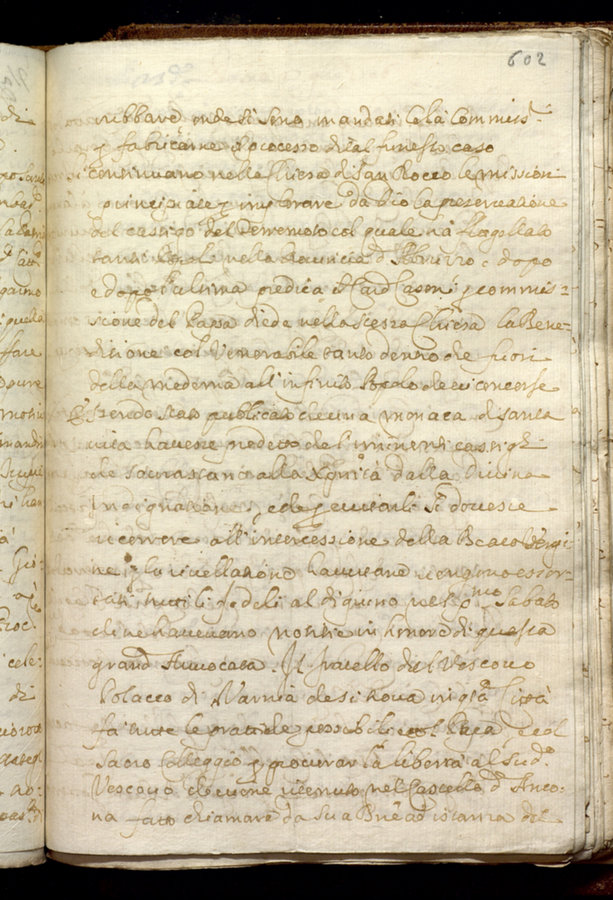 602
rubbare onde si sono mandati Celà Commiss.ri
p fabricarne il processo di tal funesto caso
Continuano nella Chiesa di San Rocco le missioni
principiate p implorare da Dio la preservazione
dal castigo del Terremoto col quale hà flagellato
tanti Popoli nella Provincia d'Abruzzo, e dopo
l'ultima predica il Card Casoni p commis-
sione del Papa diede nella stessa Chiesa la Bene-
dizione col Venerabile tanto dentro che fuori
della medema all'infinito Popolo che vi concorse
Essendo stato publicato che una monaca di santa
vita havesse predetto de l'imminenti castighi
che sourastano alla Xpnità dalla Divina
Indignatione, e che p evitarli si dovesse
ricorrere all'intercessione della Beata Vergi
ne p la rivellatione havutane vengono esor-
tati tutti li fedeli al digiuno nel p.mo Sabato
che ne haveranno notitie in honore di questa
grand'Auuocata. Il fratello del Vescovo
Polacco di Varmia che si trova in q.ta Città
fà tutte le pratiche possibili col Papa e col
Sacro Colleggio p procurar la libertà al sud.o
Vescovo che viene ritenuto nel Castello d'Anco-
na fatto chiamare da Sua B.ne ad istanza del